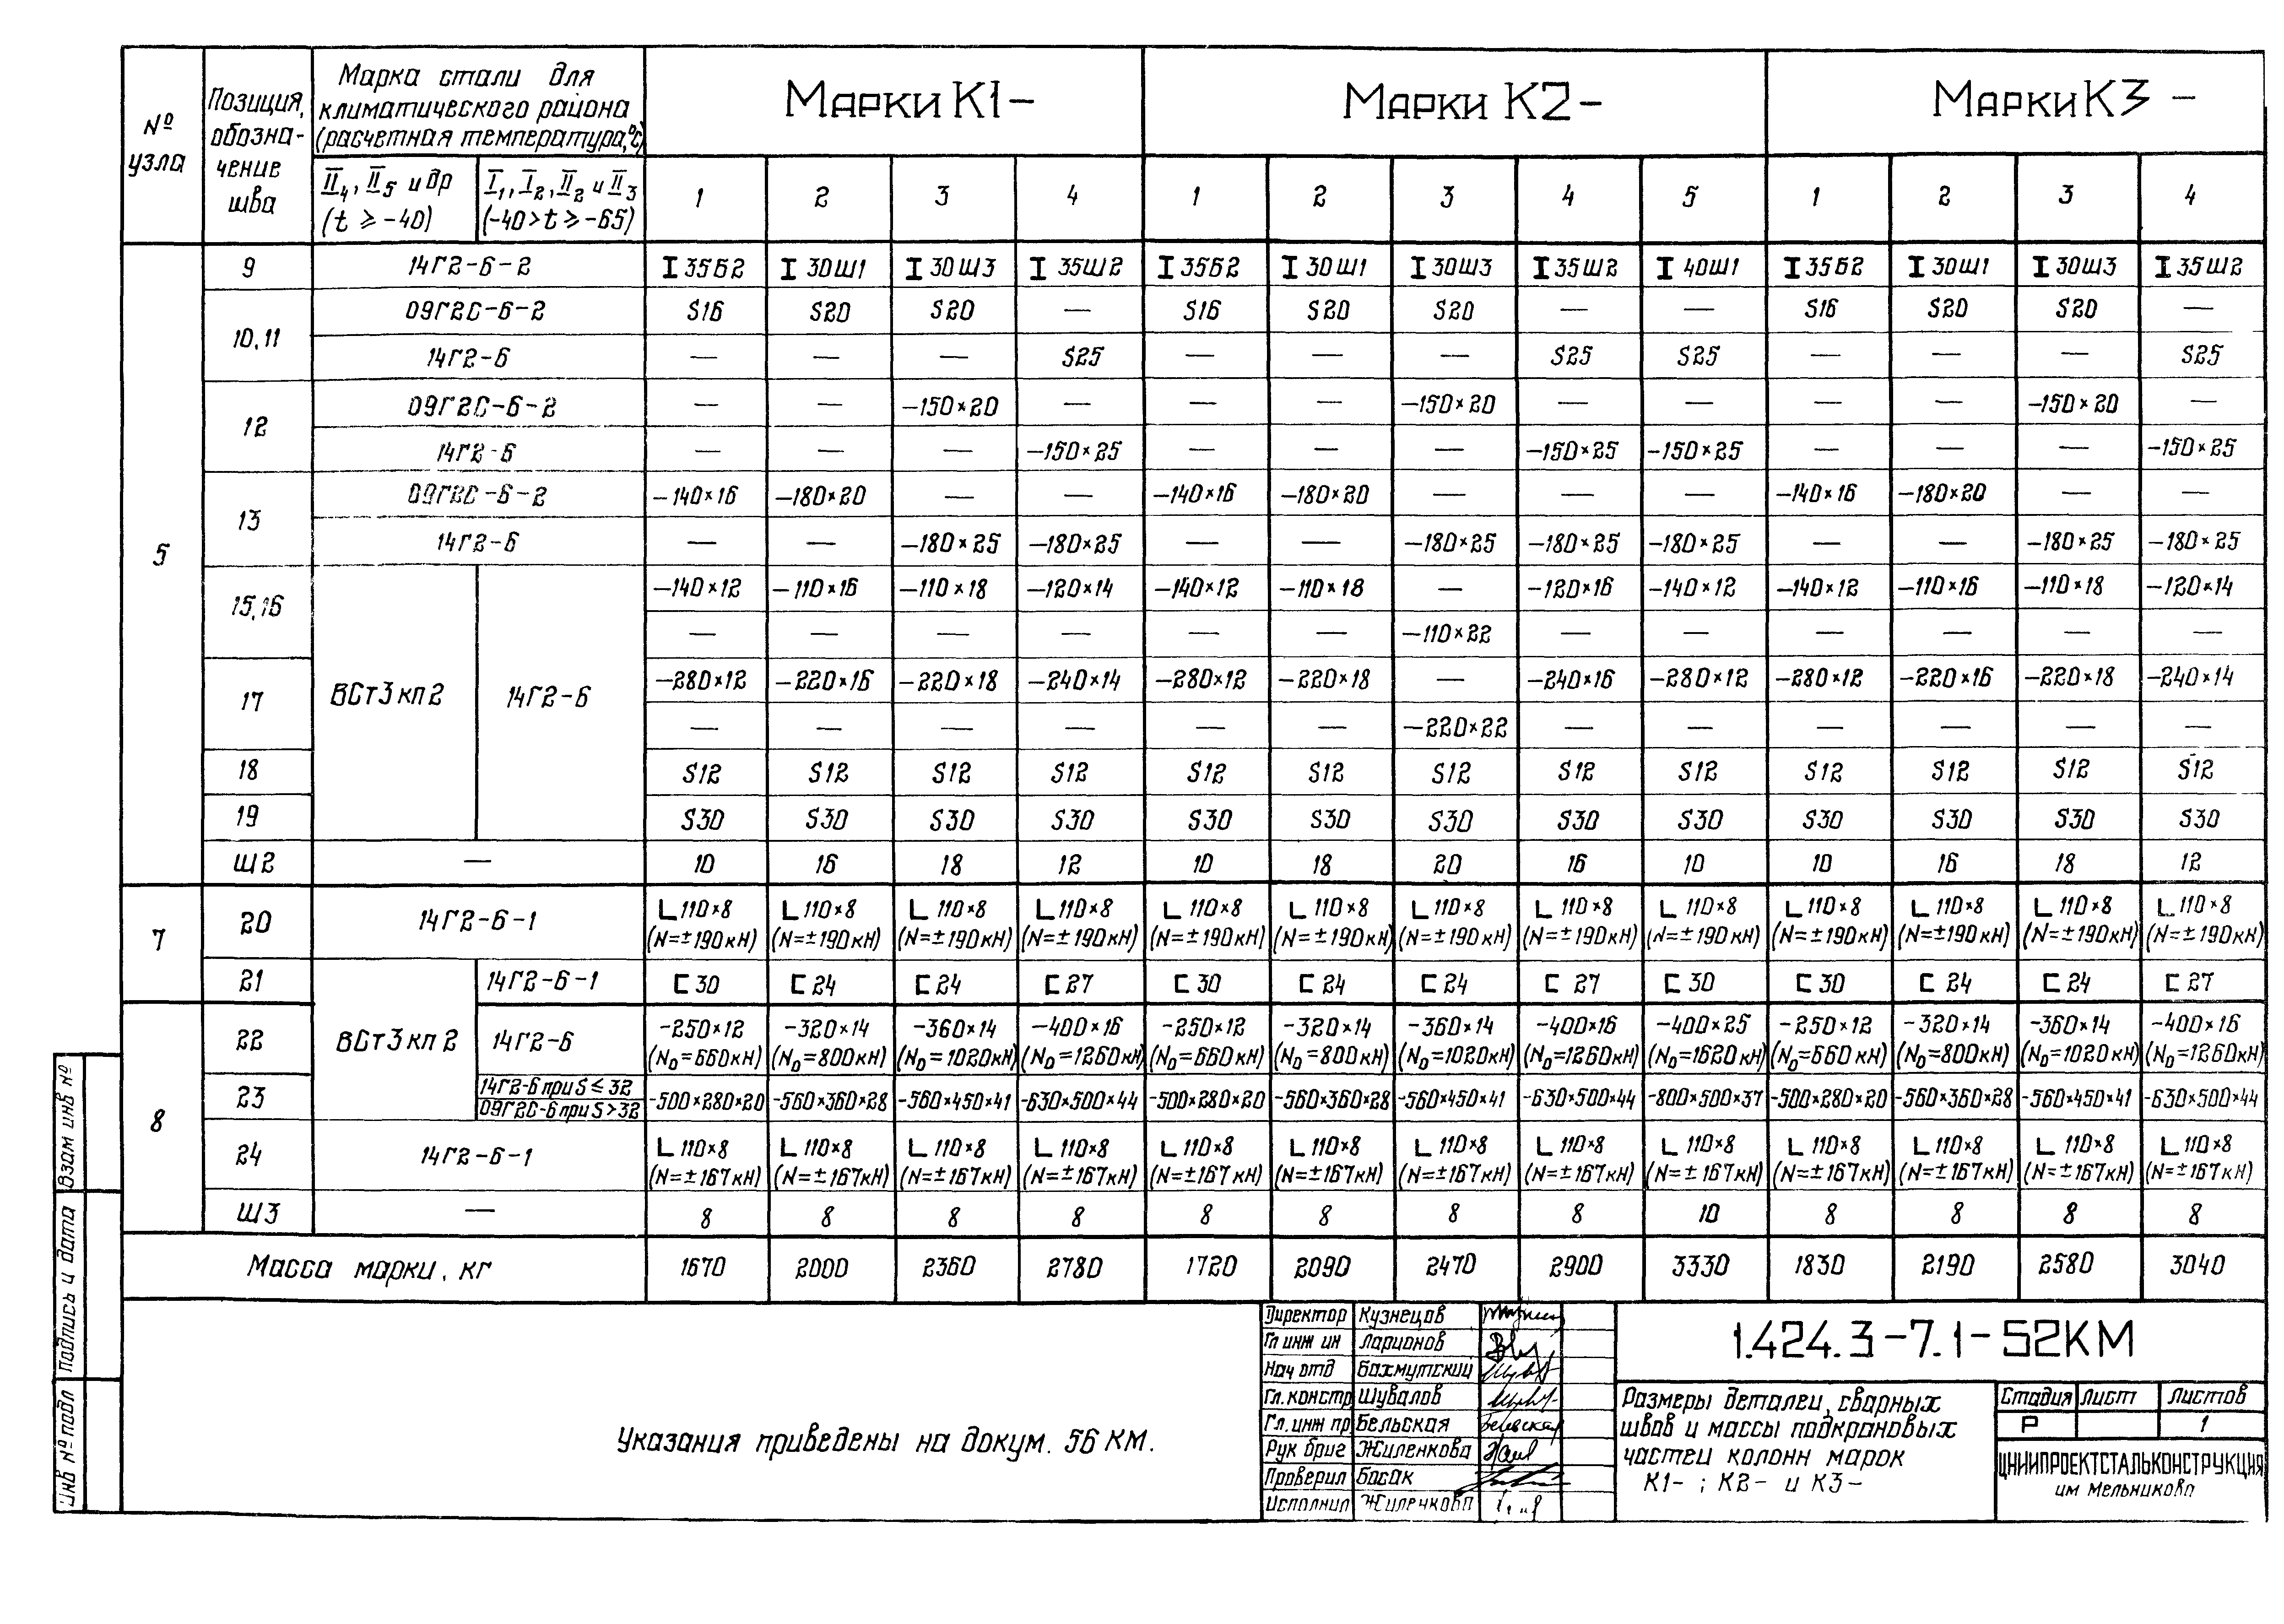 № узла
Позиция, обозна- чение шва
Марка стали для климатического района (расчетная температура,°С)
Марки К1-
Марки К2-
Марки К3 -
II4, II5 и др (t ≥ -40)
I1, I2, II2 и II3 (-40>t≥-65)
1 2 3 4 1 2 3 4 5 1 2 3 4
5
9 14Г2-6-2 I 35Б2 I 30Ш1 I 30Ш3 I 35Ш2 I 35Б2 I 30Ш1 I 30Ш3 I 35Ш2 I 40Ш1 I 35Б2 I 30Ш1 I 30Ш3 I 35Ш2
10,11 09Г2С-6-2 S16 S20 S20 — S16 S20 S20 — — S16 S20 S20 —
14Г2-6 — — — S25 — — — S25 S25 — — — S25
12 09Г2С-6-2 — — -150×20 — — — -150×20 — — — — -150×20 —
14Г2-6 — — — -150×25 — — — -150×25 -150×25 — — — -150×25
13 09Г2С-6-2 -140×16 -180×20 — — -140×16 -180×20 — — — -140×16 -180×20 — —
14Г2-6 — — -180×25 -180×25 — — -180×25 -180×25 -180×25 — — -180×25 -180×25
15,16 -140×12 -110×16 -110×18 -120×14 -140×12 -110×18 — -120×16 -140×12 -140×12 -110×16 -110×18 -120×14
— — — — — — -110×22 — — — — — —
17 ВСт3кп2 14Г2-6 -280×12 -220×16 -220×18 -240×14 -280×12 -220×18 — -240×16 -280×12 -280×12 -220×16 -220×18 -240×14
— — — — — — -220×22 — — — — — —
18 S12 S12 S12 S12 S12 S12 S12 S12 S12 S12 S12 S12 S12
19 S30 S30 S30 S30 S30 S30 S30 S30 S30 S30 S30 S30 S30
Ш2 — 10 16 18 12 10 18 20 16 10 10 16 18 12
7
20 14Г2-6-1 L 110×8 L 110×8 L 110×8 L 110×8 L 110×8 L 110×8 L 110×8 L 110×8 L 110×8 L 110×8 L 110×8 L 110×8 L 110×8
(N=±190кН) (N=±190кН) (N=±190кН) (N=±190кН) (N=±190кН) (N=±190кН) (N=±190кН) (N=±190кН) (N=±190кН) (N=±190кН) (N=±190кН) (N=±190кН) (N=±190кН)
21 14Г2-6-1 [ 30 [ 24 [ 24 [ 27 [ 30 [ 24 [ 24 [ 27 [ 30 [ 30 [ 24 [ 24 [ 27
8
22 ВСт3кп2 14Г2-6 -250×12 -320×14 -360×14 -400×16 -250×12 -320×14 -360×14 -400×16 -400×25 -250×12 -320×14 -360×14 -400×16
(N0=660кН) (N0=800кН) (N0=1020кН) (N0=1260кН) (N0=660кН) (N0=800кН) (N0=1020кН) (N0=1260кН) (N0=1620кН) (N0=660кН) (N0=800кН) (N0=1020кН) (N0=1260кН)
23 14Г2-6 при S≤32 09Г2С-6 при S>32 -500×280×20 -560×360×28 -560×450×41 -630×500×44 -500×280×20 -560×360×28 -560×450×41 -630×500×44 -800×500×37 -500×280×20 -560×360×28 -560×450×41 -630×500×44
24 14Г2-6-1 L 110×8 L 110×8 L 110×8 L 110×8 L 110×8 L 110×8 L 110×8 L 110×8 L 110×8 L 110×8 L 110×8 L 110×8 L 110×8
(N=±167кН) (N=±167кН) (N=±167кН) (N=±167кН) (N=±167кН) (N=±167кН) (N=±167кН) (N=±167кН) (N=±167кН) (N=±167кН) (N=±167кН) (N=±167кН) (N=±167кН)
Ш3 — 8 8 8 8 8 8 8 8 10 8 8 8 8
Масса марки, кг 1670 2000 2360 2780 1720 2090 2470 2900 3330 1830 2190 2580 3040
Указания приведены на докум. 56 КМ.
Директор Кузнецов
Гл инж ин Ларионов
Нач отд Бахмутский
Гл. констр Шувалов
Гл. инж пр Бельская
Рук бриг Жиленкова
Проверил Басак
Исполнил Жиленкова
1.424.3-7.1-52КМ
Размеры деталей, сварных
швов и массы подкрановых
частей колонн марок
К1- ; К2- и К3-
Стадия Лист Листов
Р 1
ЦНИИПРОЕКТСТАЛЬКОНСТРУКЦИЯ
им Мельникова
Взам инв №
Подпись и дата
Инв № подл